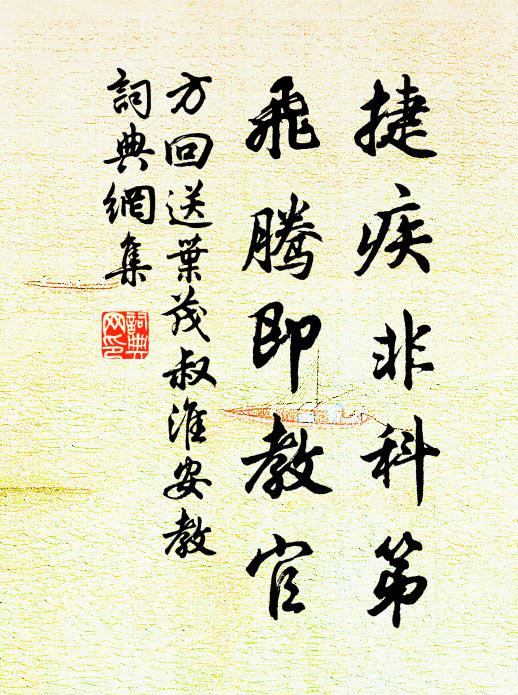 捷疾非科第
飛騰即教官
方回送葉茂叔淮安教
詞典網集
詞典网印